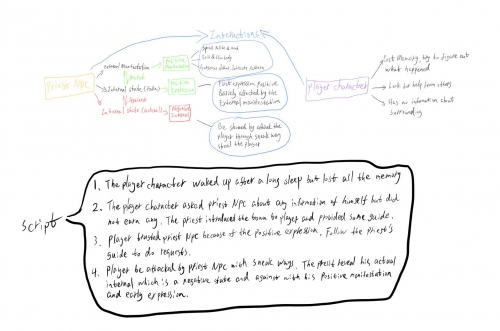 Interactions
Priest NPC
external manifestation
Internal state (fake)
Against
Internal state (actual)
Positive
Positive
Expression
Negative
Internal
First expression positive
External manifestation
Be showed by attack the
player through sneak way
Player character
Lost Memory, try to figure out
what happened
Look for help from others
Has no information about
surrounding
Script
1. The player character waked up after a long sleep but lost all the memory
2. The player character asked priest NPC about any information of himself but did
not earn any. The priest introduced the town to player and provided some guide.
3. Player trusted priest NPC because of the positive expression. Follow the priest's
guide to do requests.
4. Player be attacked by priest NPC with sneak ways. The priest reveal his actual
internal which is a negative state and against with his positive manifestation
and early expression.